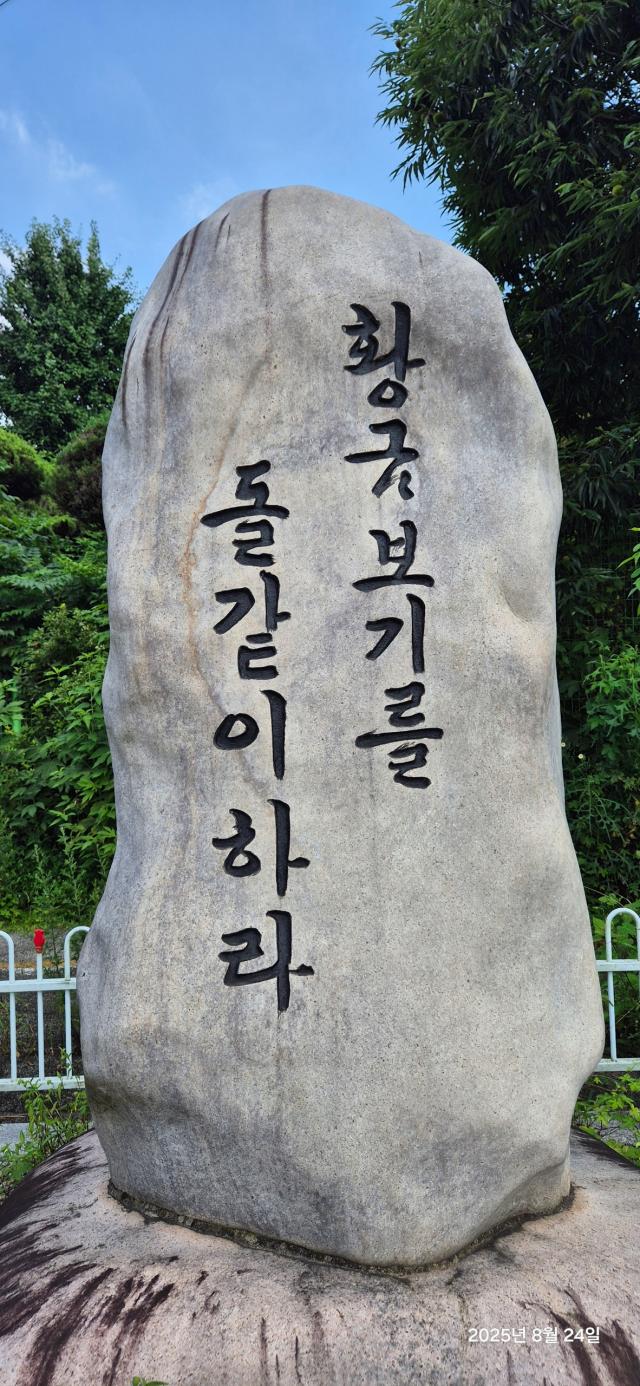 황금 보기를
돌같이 하라
2025년 8월 24일